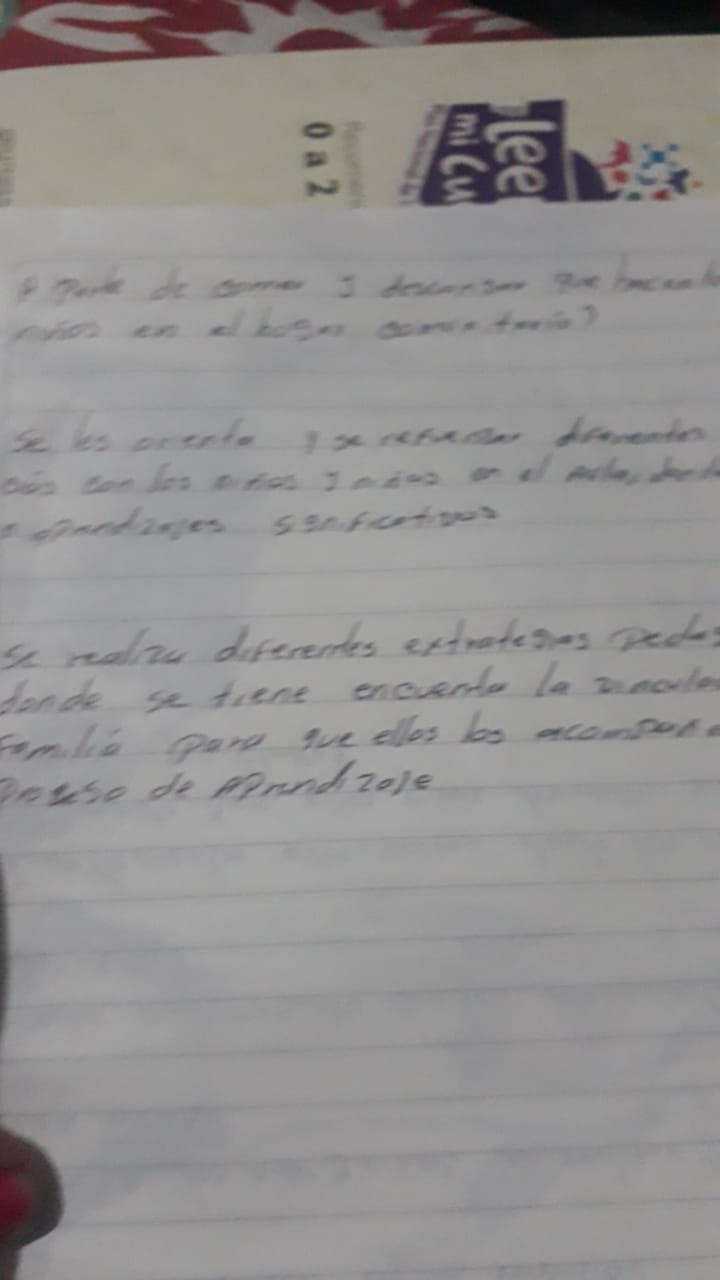 0 a 2
lee
mi cu
A parte de comer y descansar que hacen l
niños en el hogar comunitario?
Se les orienta y se refuerzan diferentes
con los niños y niñas en el Aula, donde
aprendizajes significativos
Se realizu diferentes extrategias Peda
donde se tiene encuenta la vincula
familia para que ellos los acompañe
Proseso de Aprendizaje